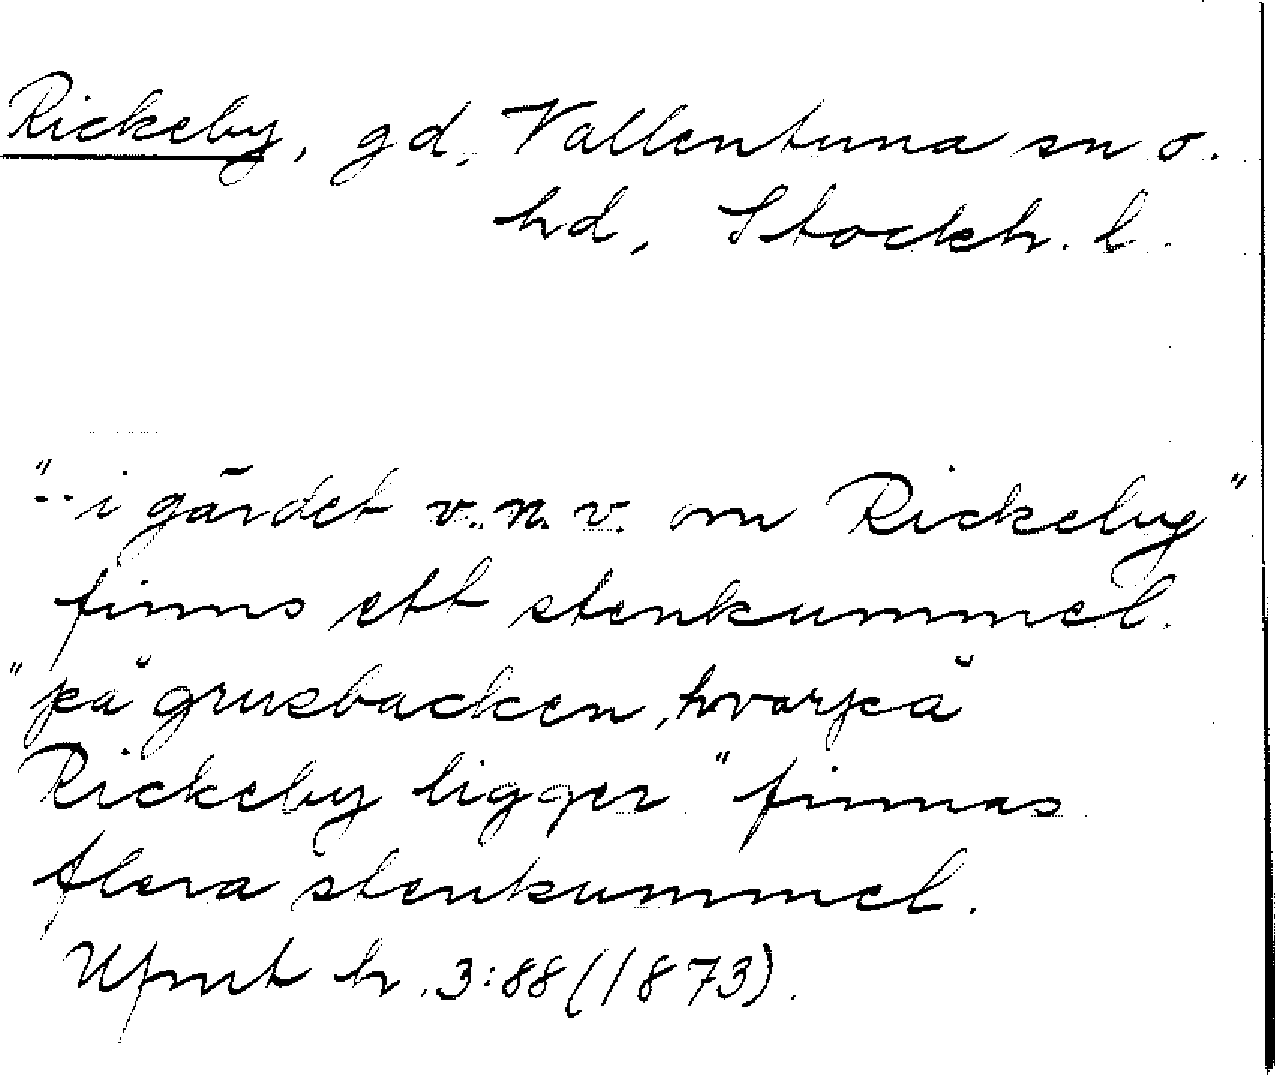 Rickeby, gd, Vallentuna sn o.
hd, Stockh. l.
"-- i gärdet v.n.v. om Rickeby"
finns ett stenkummel.
"på grusbacken, hvarpå
Rickeby ligger" finnas
flera stenkummel.
Ufmt h. 3:88 (1873).